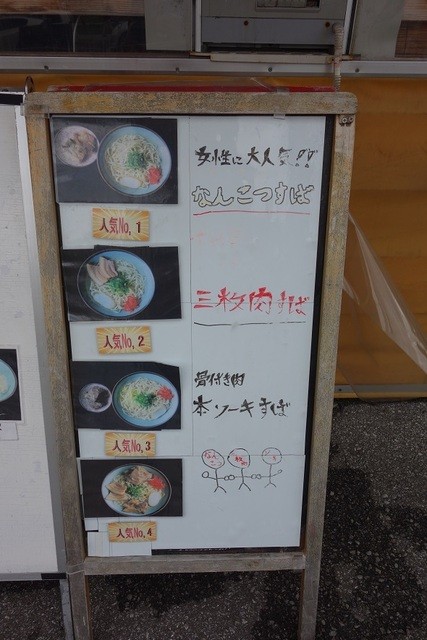 女性に大人気!!
なんこつすば
人気No,1
三枚肉すば
人気No,2
骨付き肉
本ソーキすば
人気No,3
人気No,4